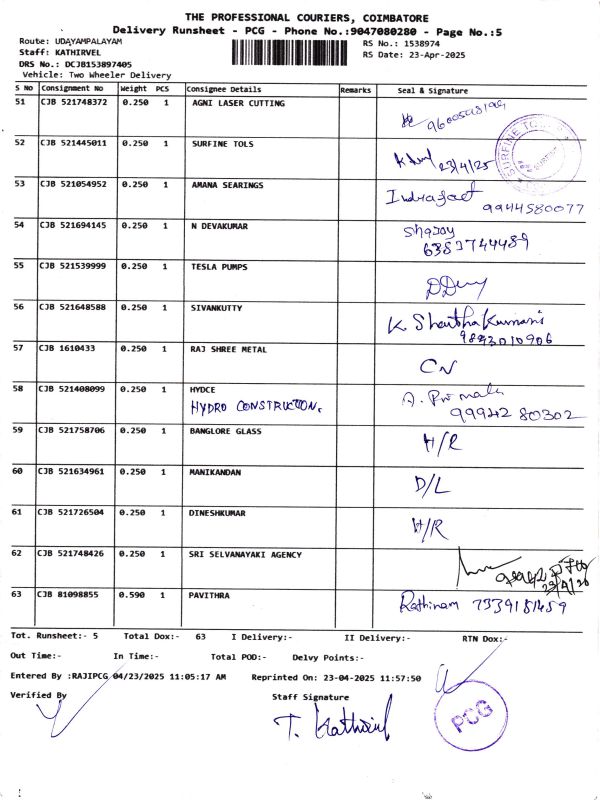 THE PROFESSIONAL COURIERS, COIMBATORE
Delivery Runsheet - PCG - Phone No.:9047080280 - Page No.:5
Route: UDAYAMPALAYAM RS No.: 1538974
Staff: KATHIRVEL RS Date: 23-Apr-2025
DRS No.: DCJB153897405
Vehicle: Two Wheeler Delivery
S No Consignment No Weight PCS Consignee Details Remarks Seal & Signature
51 CJB 521748372 0.250 1 AGNI LASER CUTTING
52 CJB 521445011 0.250 1 SURFINE TOLS 23/4/25
53 CJB 521054952 0.250 1 AMANA SEARINGS 9944580077
54 CJB 521694145 0.250 1 N DEVAKUMAR
6383744489
55 CJB 521539999 0.250 1 TESLA PUMPS
56 CJB 521648588 0.250 1 SIVANKUTTY K.
9843010906
57 CJB 1610433 0.250 1 RAJ SHREE METAL CN
58 CJB 521408099 0.250 1 HYDCE A.
HYDRO CONSTRUCTION. 9994280302
59 CJB 521758706 0.250 1 BANGLORE GLASS H/R
60 CJB 521634961 0.250 1 MANIKANDAN D/L
61 CJB 521726504 0.250 1 DINESHKUMAR H/R
62 CJB 521748426 0.250 1 SRI SELVANAYAKI AGENCY
63 CJB 81098855 0.590 1 PAVITHRA Rathinam
Tot. Runsheet:- 5 Total Dox:- 63 I Delivery:- II Delivery:- RTN Dox:-
Out Time:- In Time:- Total POD:- Delvy Points:-
Entered By :RAJIPCG 04/23/2025 11:05:17 AM Reprinted On: 23-04-2025 11:57:50
Verified By Staff Signature
T. Kathirvel
PCG